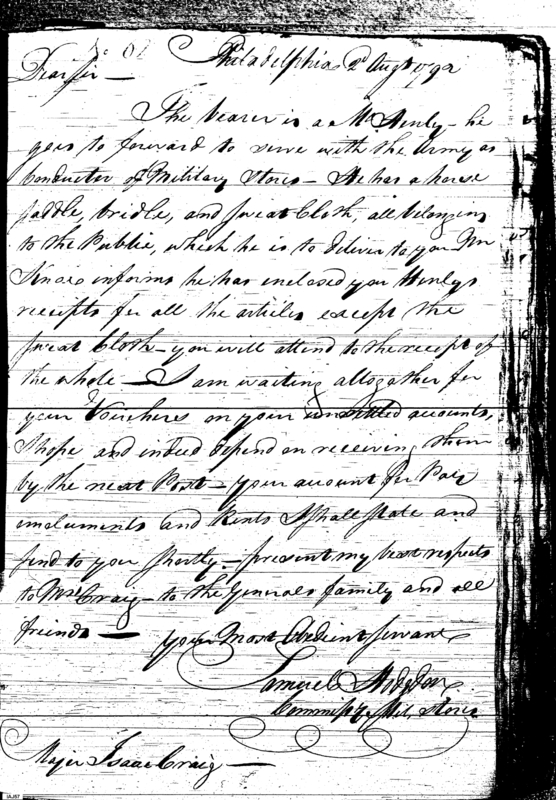 No. 81
Philadelphia 2d Augt 1792
Dear sir —
The bearer is a Mr. Henly — he
goes to forward to serve with the Army as
Conductor of Military Stores — He has a horse
saddle, bridle, and sweat Cloth, all belonging
to the Public, which he is to deliver to you Mr
informs he has enclosed you Henlys
receipts for all the articles except the
sweat Cloth — you will attend to the receipt of
the whole — I am waiting altogather for
your Vouchers on your unsettled accounts,
I hope and indeed depend on receiving them
by the next Post — your account for Pay
emoluments and Rents I shall state and
send to you shortly — present my best respects
to Mrs Craig — to the Generals family and all
friends —
your most Obedient servant
Samuel Hodgdon
Commissy Mil. Stores
Major Isaac Craig —